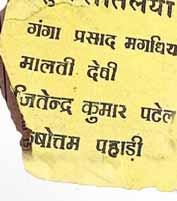 गंगा प्रसाद मगधिय
मालती देवी
जितेन्द्र कुमार पटेल
षोत्तम पहाड़ी